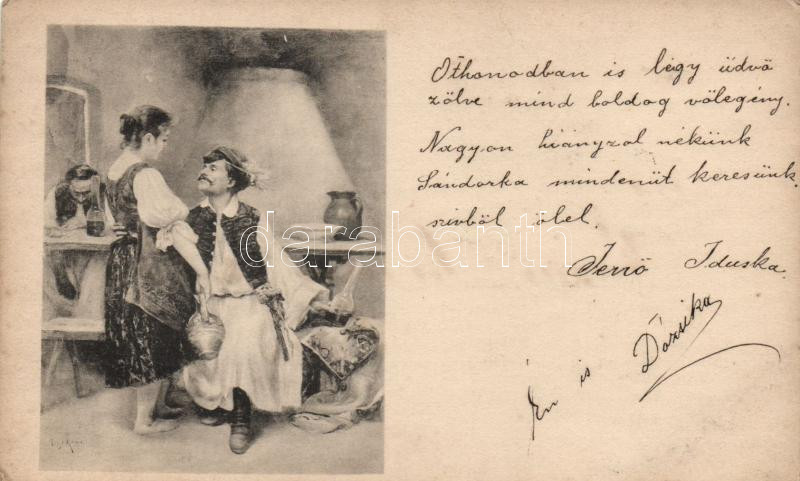 Othonodban is légy üdvö
zölve mind boldog vőlegény.
Nagyon hiányzol nékünk
Sándorka mindenüt keresünk.
szivböl ölel.
Jenő Iduska.
Én is Dózsika
darabanth.com